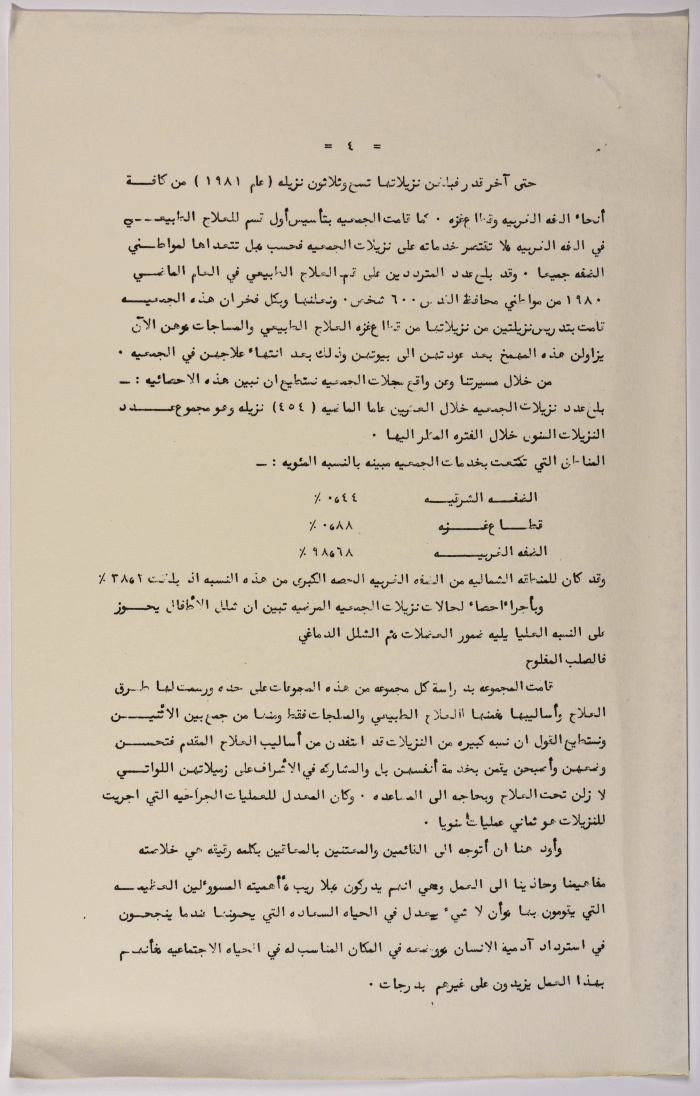 = ٤ =
حتى آخر قدر فبلغن نزيلاتها تسع وثلاثون نزيله ( عام ١٩٨١ ) من كافـــة
أنحاء الضفه الغربيه وقطاع غزه ٠ كما قامت الجمعيه بتأسيس أول قسم للعلاج الطبيعـــي
في الضفه الغربيه فلا تقتصر خدماته على نزيلات الجمعيه فحسب بل تتعداها لمواطـــني
الضفه جميعا ٠ وقد بلغ عدد المترددين على قسم العلاج الطبيعي في العام الماضـــي
١٩٨٠ من مواطني محافظة القدس ٦٠٠ شخص ٠ ونعلنها وبكل فخر ان هذه الجمعيـــه
قامت بتدريس نزيلتين من نزيلاتها من قطاع غزه العلاج الطبيعي والمساجات وهن الآن
يزاولن هذه المهمخ بعد عودتهن الى بيوتهن وذلك بعد انتهاء علاجهن في الجمعيه ٠
من خلال مسيرتنا وعن واقع سجلات الجمعيه نستطيع ان نبين هذه الاحصائيه : ــ
بلغ عدد نزيلات الجمعيه خلال العشرين عاما الماضيه ( ٤٥٤ ) نزيله وهو مجموع عـــدد
النزيلات السنوى خلال الفتره المنظر اليها ٠
المناطق التي تمتعت بخدمات الجمعيه مبينه بالنسبه المئويه : ــ
الضفـــه الشرقيـــه ٠٫٤٤ ٪
قطـــاع غـــزه ٠٫٨٨ ٪
الضفه الغربيـــــه ٩٨٫٦٨ ٪
وقد كان للمنطقه الشماليه من الضفه الغربيه الحصه الكبرى من هذه النسبه اذ بلغت ٣٨٫٢ ٪
وبأجراء احصاء لحالات نزيلات الجمعيه المرضيه تبين ان شلل الأطفال يحـــوز
على النسبه العليا يليه ضمور العضلات ثم الشلل الدماغي
فالصلب المفلوج
قامت المجموعه بدراسة كل مجموعه من هذه المجموعات على حده ورسمت لها طـــرق
العلاج وأساليبها فمنها العلاج الطبيعي والمعلجات فقط ومنها من جمع بين الاثنيـــن
ونستطيع القول ان نسبه كبيره من النزيلات قد استفدن من أساليب العلاج المقدم فتحســـن
وضعهن وأصبحن يقمن بخدمة أنفسهن بل والمشاركه في الأشراف على زميلاتهن اللواتـــي
لا زلن تحت العلاج وبحاجه الى المساعده ٠ وكان المعدل للعمليات الجراحيه التي اجريت
للنزيلات هو ثماني عمليات سنويا ٠
وأود هنا ان أتوجه الى القائمين والمعتنين بالمعاقين بكلمه رقيقه هي خلاصته
مفاهيمنا وحاذينا الى العمل وهي انهم يدركون بلا ريب أهميته المسوولين العظيمـــه
التي يقومون بها وأن لا شيء يعدل في الحياه السعاده التي يحسونها عندما ينجحـــون
في استرداد آدمية الانسان ووضعه في المكان المناسب له في الحياه الاجتماعيه فأنهـــم
بهذا العمل يزيدون على غيرهم بدرجات ٠